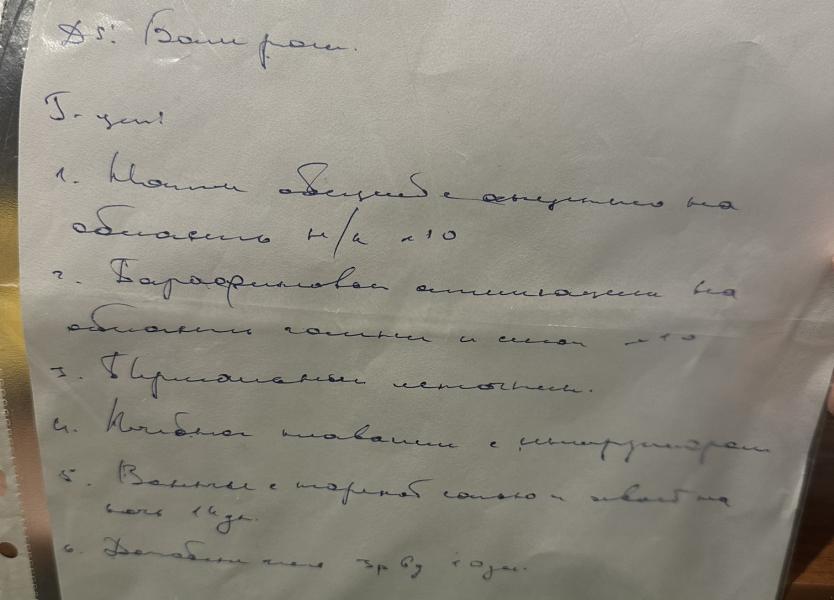 Ds:
1. общий с акцентом на
область н/к №10
2. Парафиновые аппликации на
области голени и стоп №10
3. Термальный источник.
4. Лечебное плавание с инструктором
5. Ванны с морской солью и хвоей на
ночь 14 дн.
6. 3р в д